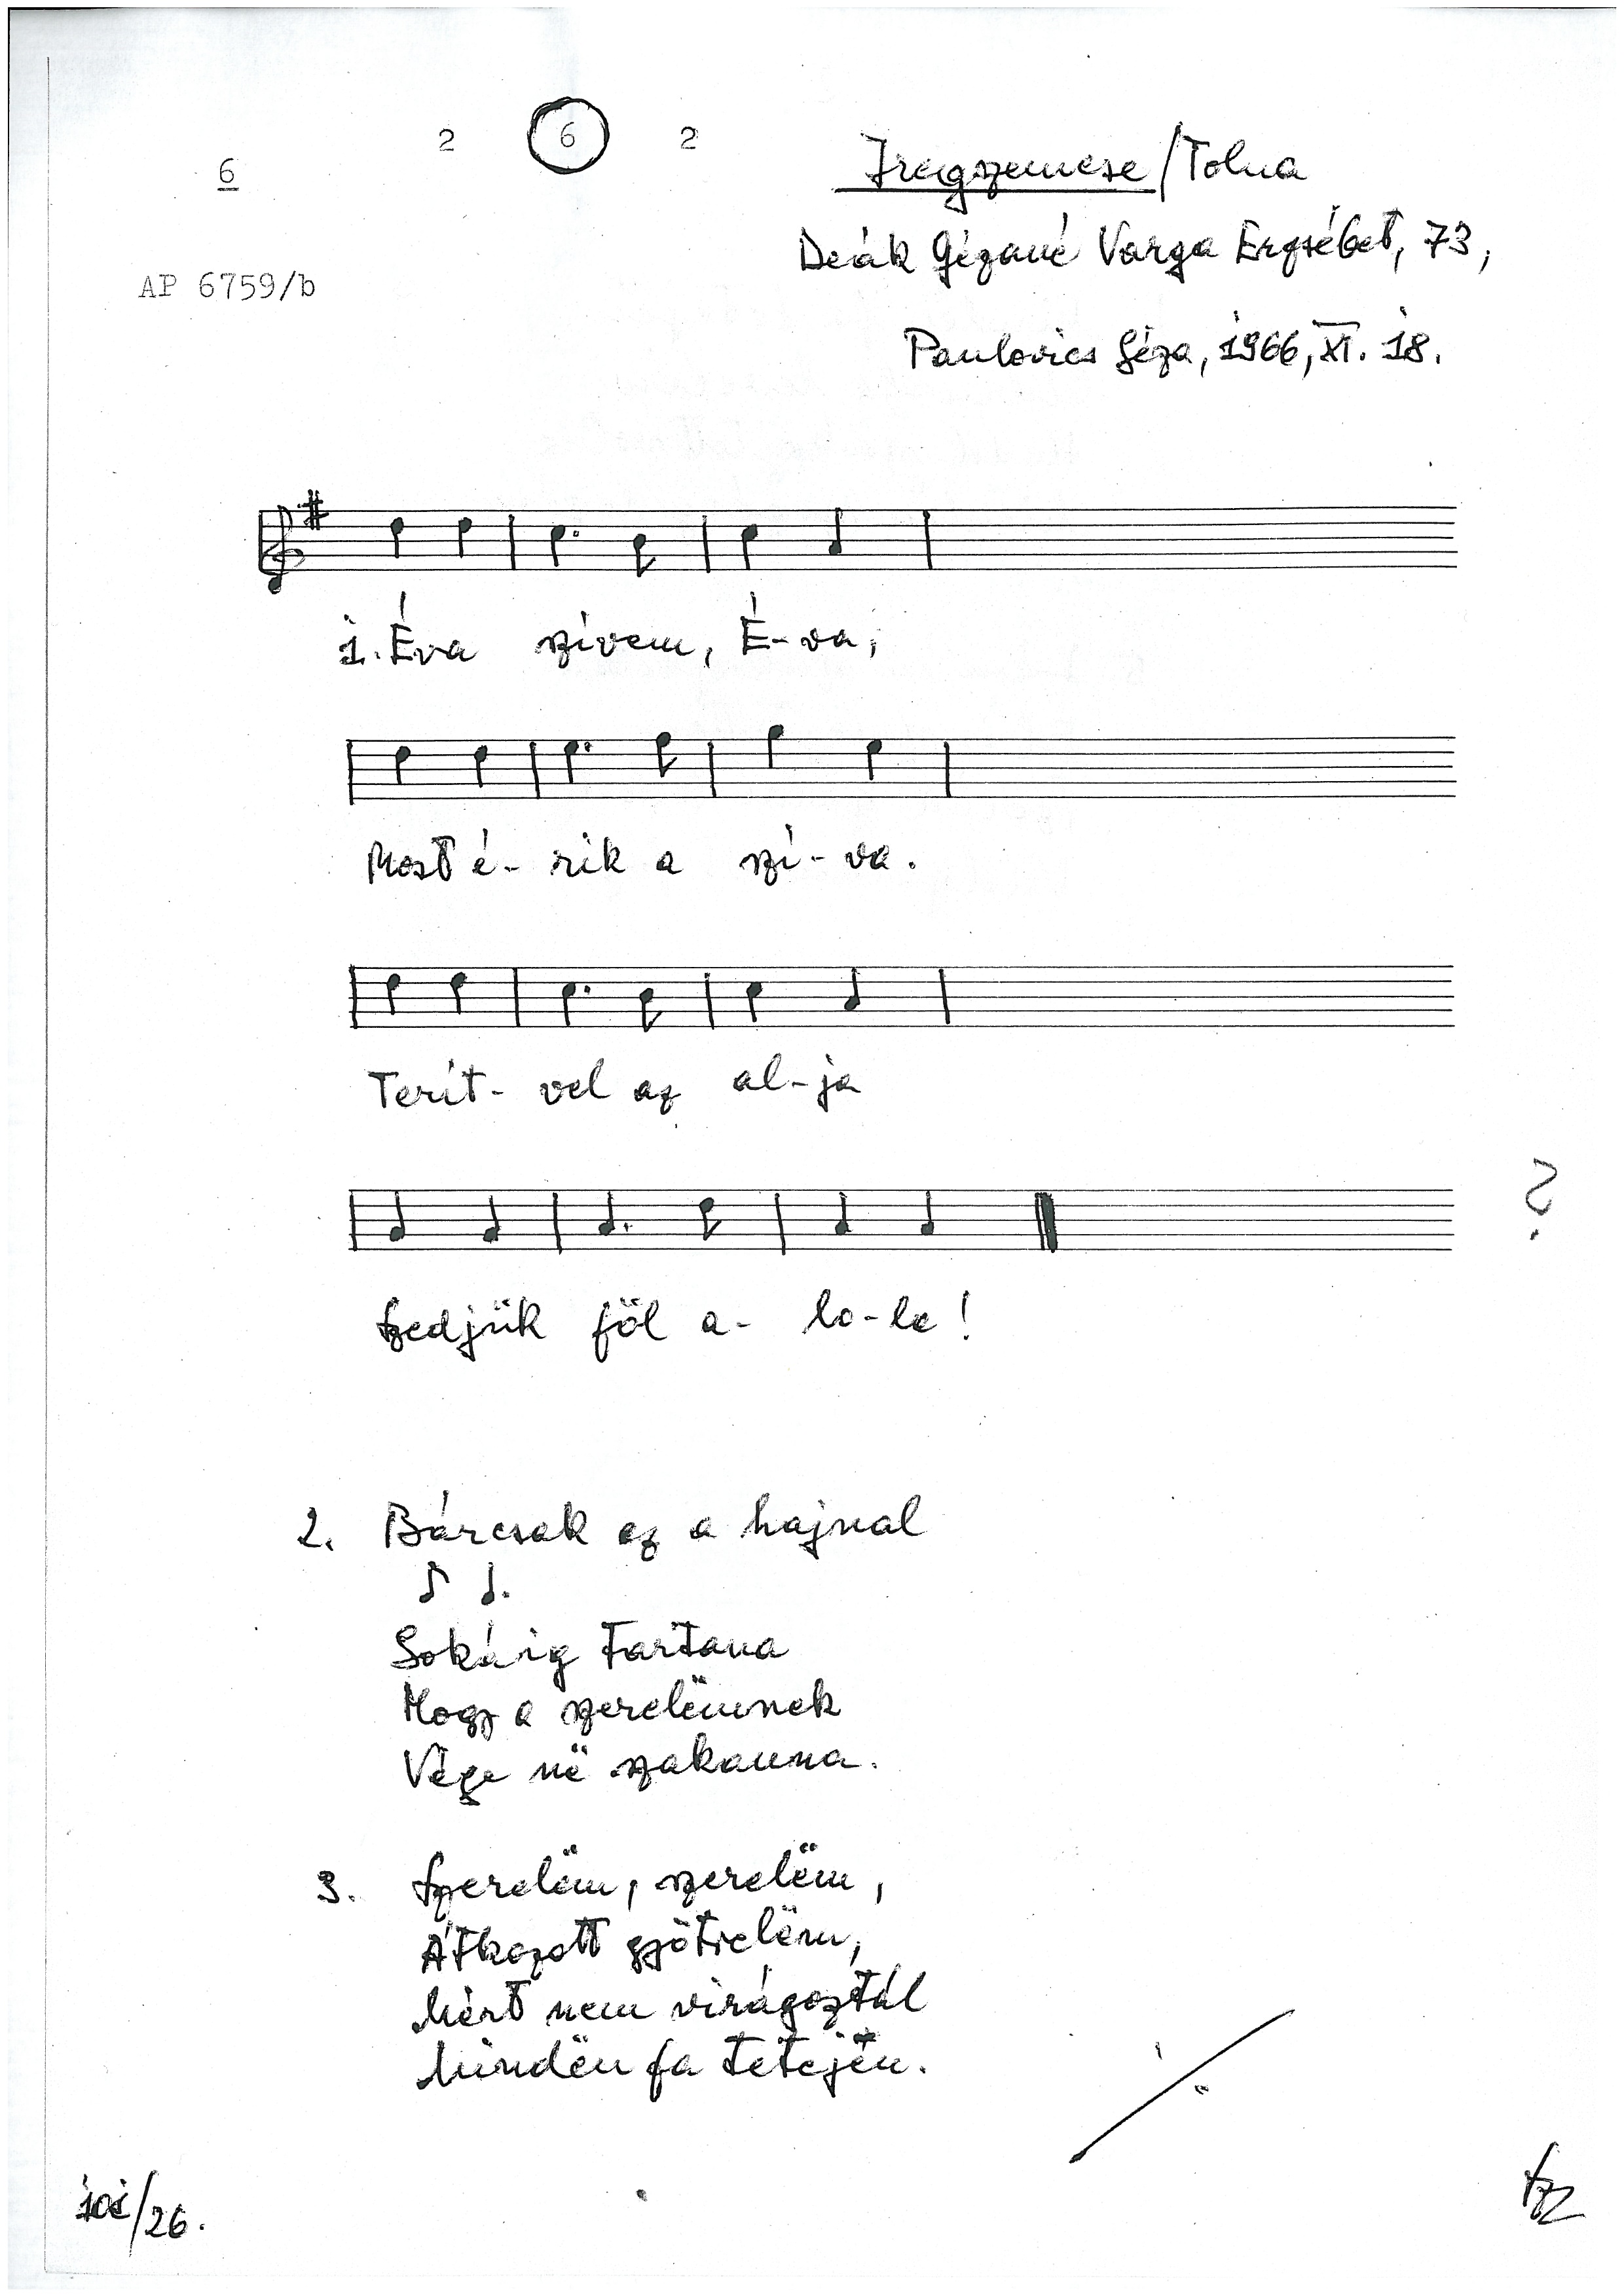 2 6 2
6
Iregszemcse/Tolna
Deák Gézané Varga Erzsébet, 73,
AP 6759/b
Paulovics Géza, 1966, XI. 18.
1. Éva szívem, É-va,
Most é- rik a szí-va.
Terít- vel az al-ja
?
Szedjük föl a- lo-la!
2. Bárcsak ez a hajnal
Sokáig tartana
Hogy a szerelëmnek
Vége në szakanna.
3. Szerelëm, szerelëm,
Átkozott gyötrelëm,
Mért nem virágoztál
Mindën fa tetején.
/26.